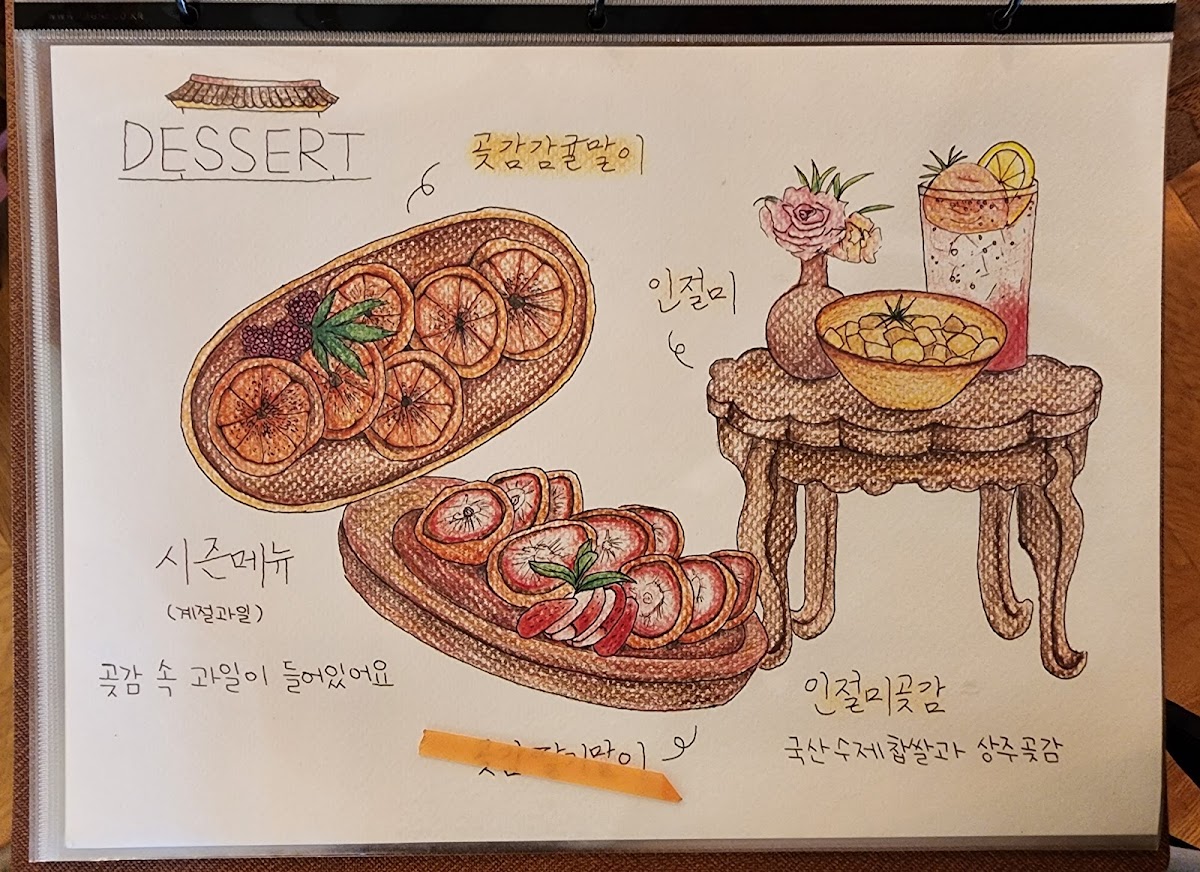 DESSERT
곶감감귤말이
인절미
시즌메뉴
(계절과일)
곶감 속 과일이 들어있어요
말이
인절미곶감
국산수제찹쌀과 상주곶감